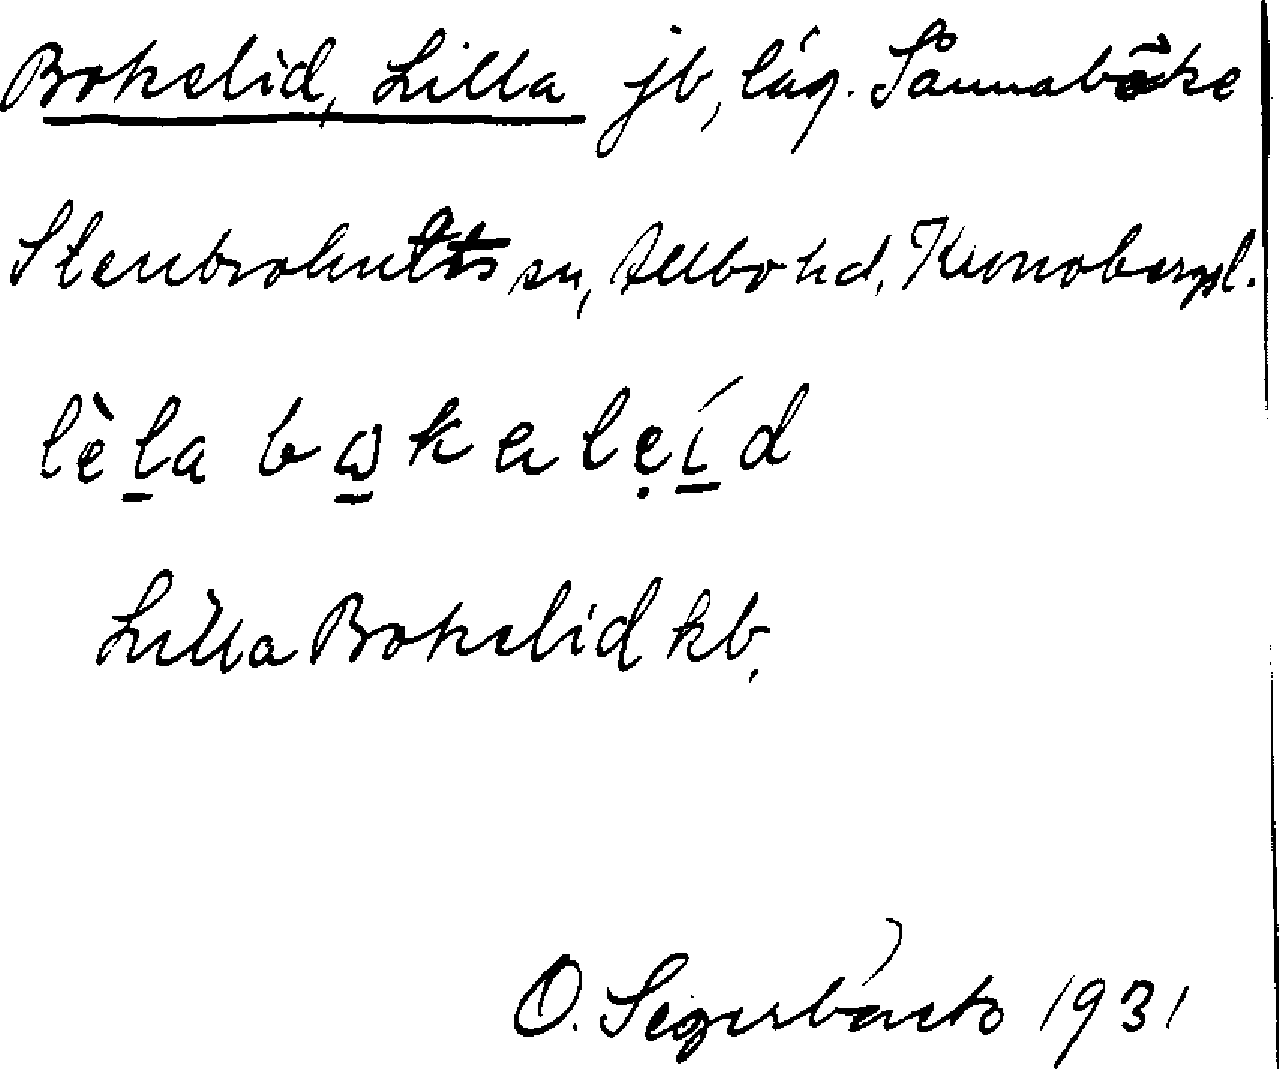 Bokelid, Lilla jb, läg. Sånnaböke
Stenbrohults sn, Allbo hd, Kronobergs l.
lèla bɷkalẹíd
Lilla Bokelid kb.
O. Segerbäck 1931